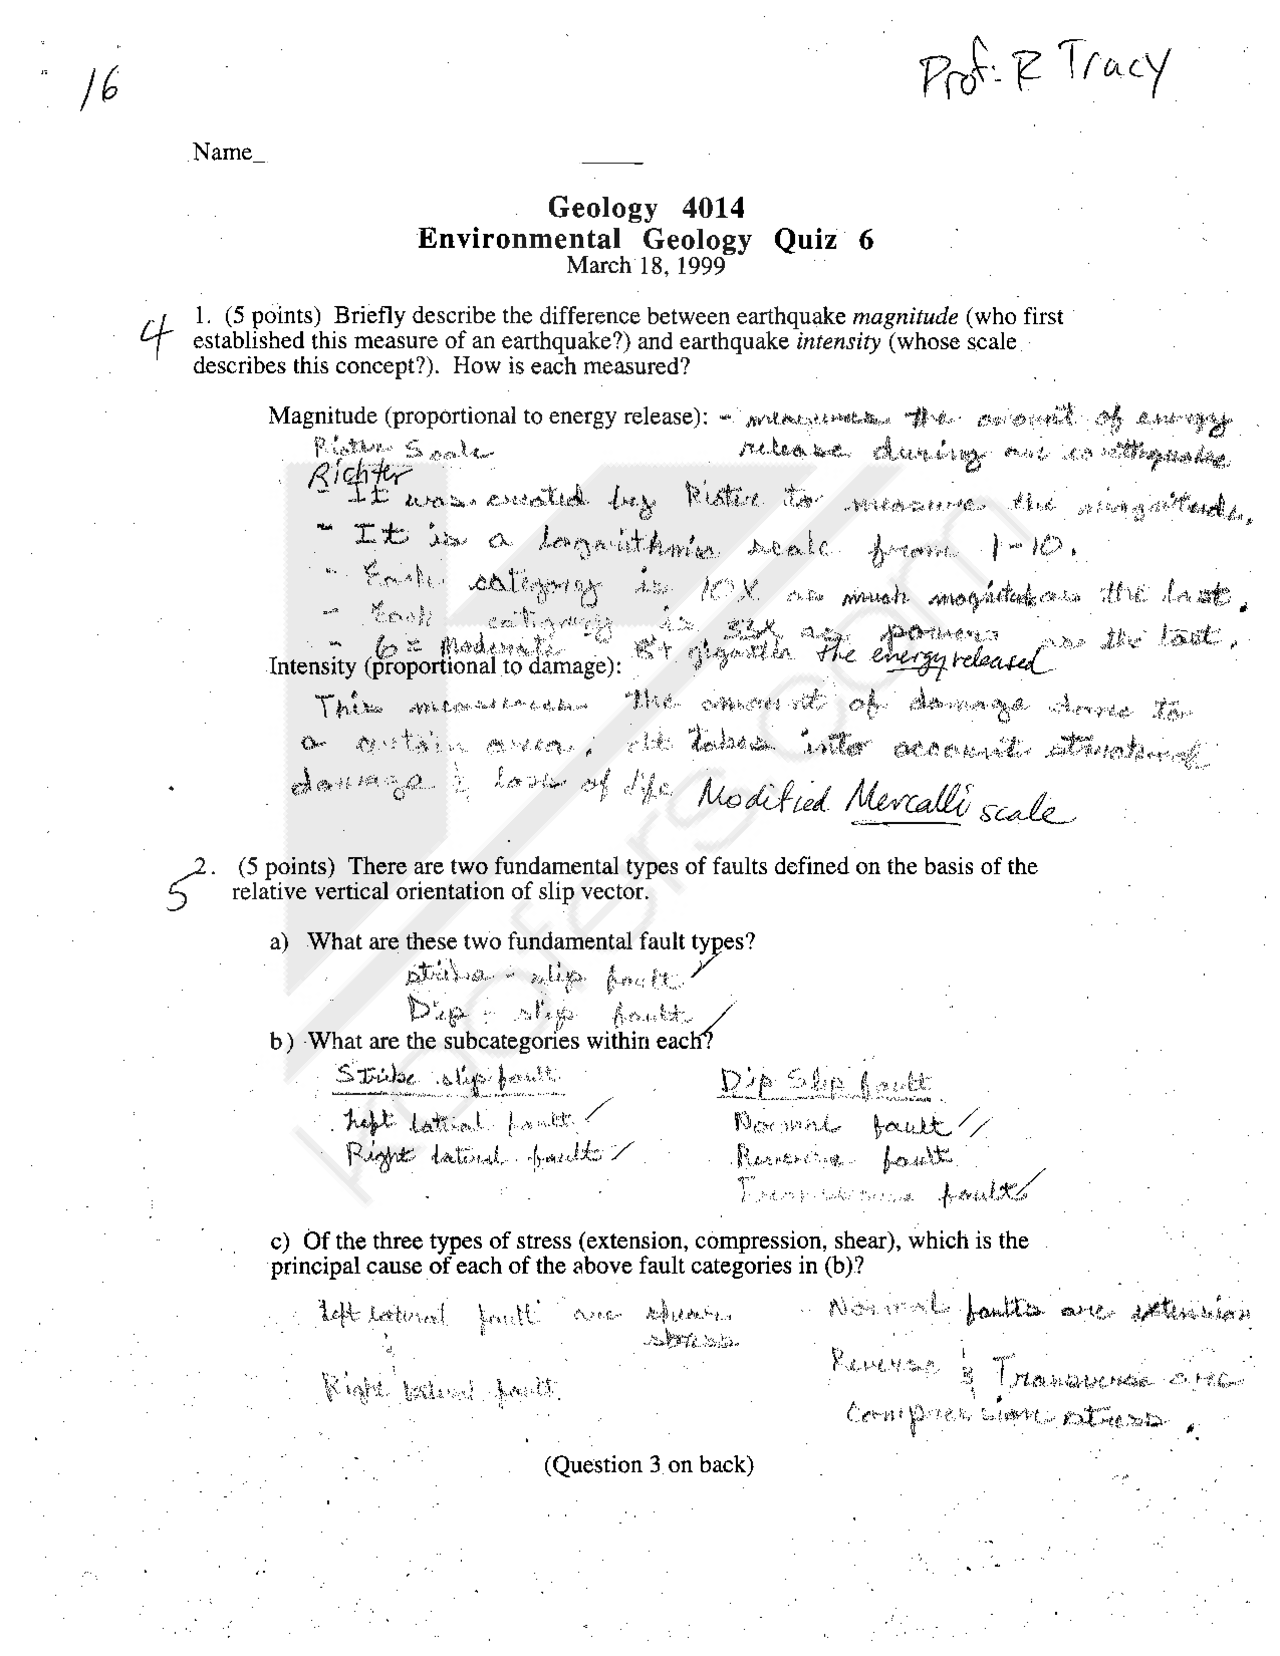 16
Prof: R Tracy
Name_
Geology 4014
Environmental Geology Quiz 6
March 18, 1999
4
1. (5 points) Briefly describe the difference between earthquake magnitude (who first
established this measure of an earthquake?) and earthquake intensity (whose scale
describes this concept?). How is each measured?
Magnitude (proportional to energy release): - measures the amount of energy
Ristre Scale release during an earthquake
Richter
- It was created by Ristre to measure the magnitude.
- It is a logarithmic scale from 1-10.
- Each category is 10X as much magnitude as the last.
- Each category is 33X as powers as the last.
- 6 = Moderate 8+ gigantic the energy released
Intensity (proportional to damage):
This measures the amount of damage done to
a certain area; it takes into account structural
damage & loss of life Modified Mercalli scale
5
2. (5 points) There are two fundamental types of faults defined on the basis of the
relative vertical orientation of slip vector.
a) What are these two fundamental fault types?
strike - slip fault
Dip - slip fault
b) What are the subcategories within each?
Strike slip fault Dip Slip fault
Left lateral fault Normal fault
Right lateral fault Reverse fault
Transverse fault
c) Of the three types of stress (extension, compression, shear), which is the
principal cause of each of the above fault categories in (b)?
left lateral fault are shear Normal faults are extension
stress
&
Right lateral fault. Reverse & Transverse are
Compression stress.
(Question 3 on back)
koofers.com